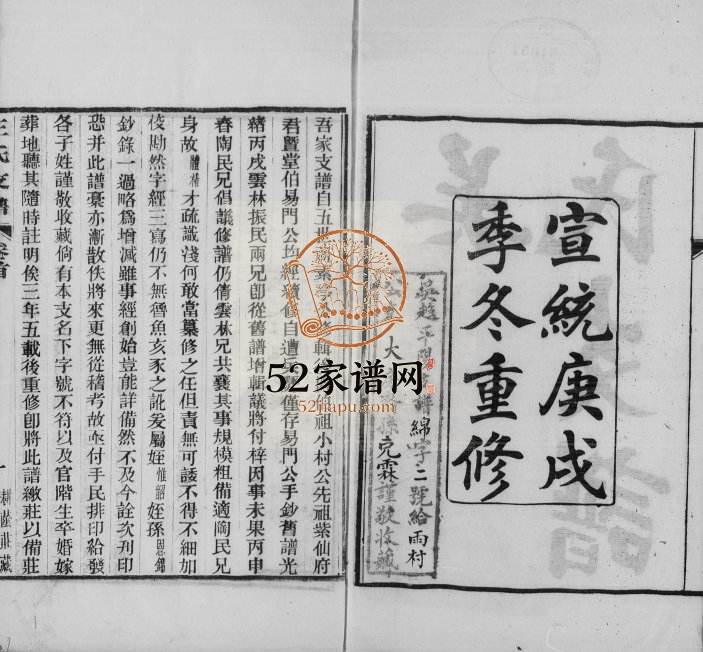 宣統庚戌
季冬重修
綿字二號給雨村
克霖謹敬收藏
吾家支譜自五世
祖小村公先祖紫仙府
君暨堂伯易門公均經續修自遭
僅存易門公手鈔舊譜光
緒丙戌雲林振民兩兄卽從舊譜增輯議將付梓因事未果丙申
春陶民兄倡議修譜仍倩雲林兄共襄其事規模粗備適陶民兄
身故 才疏識淺何敢當纂修之任但責無可諉不得不細加
佼勘然字經三寫仍不無魯魚亥豕之訛爰屬姪惟韶姪孫恩錦
鈔錄一過略爲增減雖事經創始豈能詳備然不及今詮次刋印
恐并此譜藁亦漸散佚將來更無從稽考故亟付手民排印給發
各子姓謹敬收藏倘有本支名下字號不符以及官階生卒婚嫁
葬地聽其隨時註明俟三年五載後重修卽將此譜繳莊以備莊
王氏支譜
卷首
一
耕蔭莊藏
52家谱网
52jiapu.com